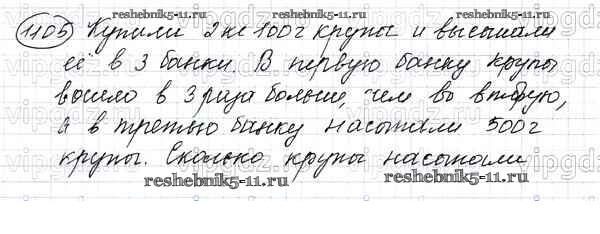 reshebnik5-11.ru
1105 Купили 2 кг 100 г крупы и высыпали
её в 3 банки. В первую банку крупы
вошло в 3 раза больше, чем во вторую,
а в третью банку насыпали 500 г
крупы. Сколько крупы насыпали
reshebnik5-11.ru
reshebnik5-11.ru